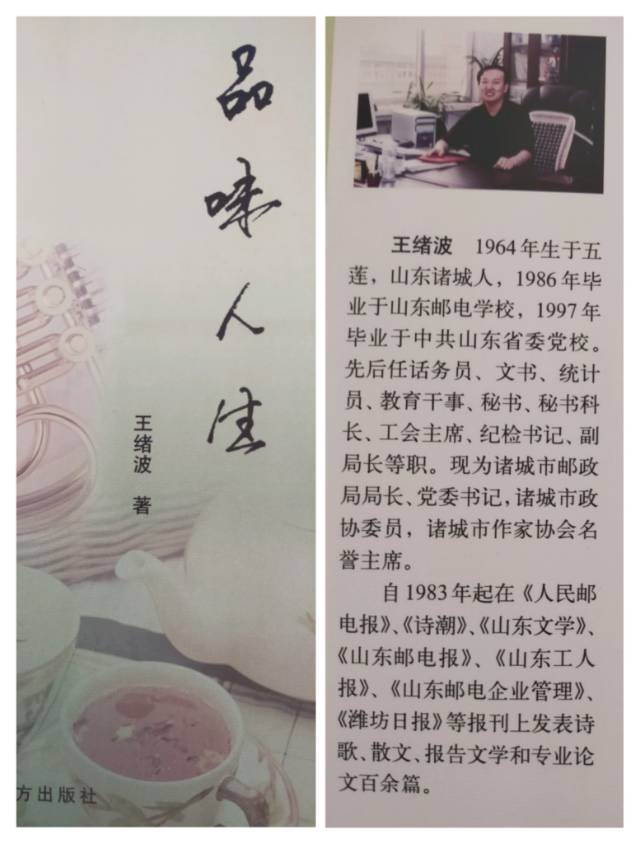 品味人生
王绪波 著
方出版社
王绪波 1964年生于五
莲，山东诸城人，1986年毕
业于山东邮电学校，1997年
毕业于中共山东省委党校。
先后任话务员、文书、统计
员、教育干事、秘书、秘书科
长、工会主席、纪检书记、副
局长等职。现为诸城市邮政
局局长、党委书记，诸城市政
协委员，诸城市作家协会名
誉主席。
自1983年起在《人民邮
电报》、《诗潮》、《山东文学》、
《山东邮电报》、《山东工人
报》、《山东邮电企业管理》、
《潍坊日报》等报刊上发表诗
歌、散文、报告文学和专业论
文百余篇。